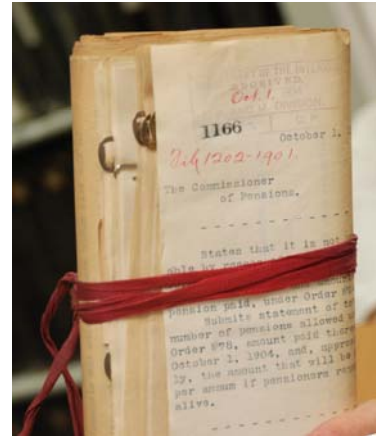 OF THE INTER
RECEIVED
Oct. 1.
DIVISION.
1166
October 1,
File 1202-1901.
The Commissioner
of Pensions.
States that it is not
able by
pension paid, under Order #78
Submits statement of
number of pensions allowed
Order #78, amount paid there
October 1, 1904, and,
ly, the amount that will be
per annum if pensioners
alive.